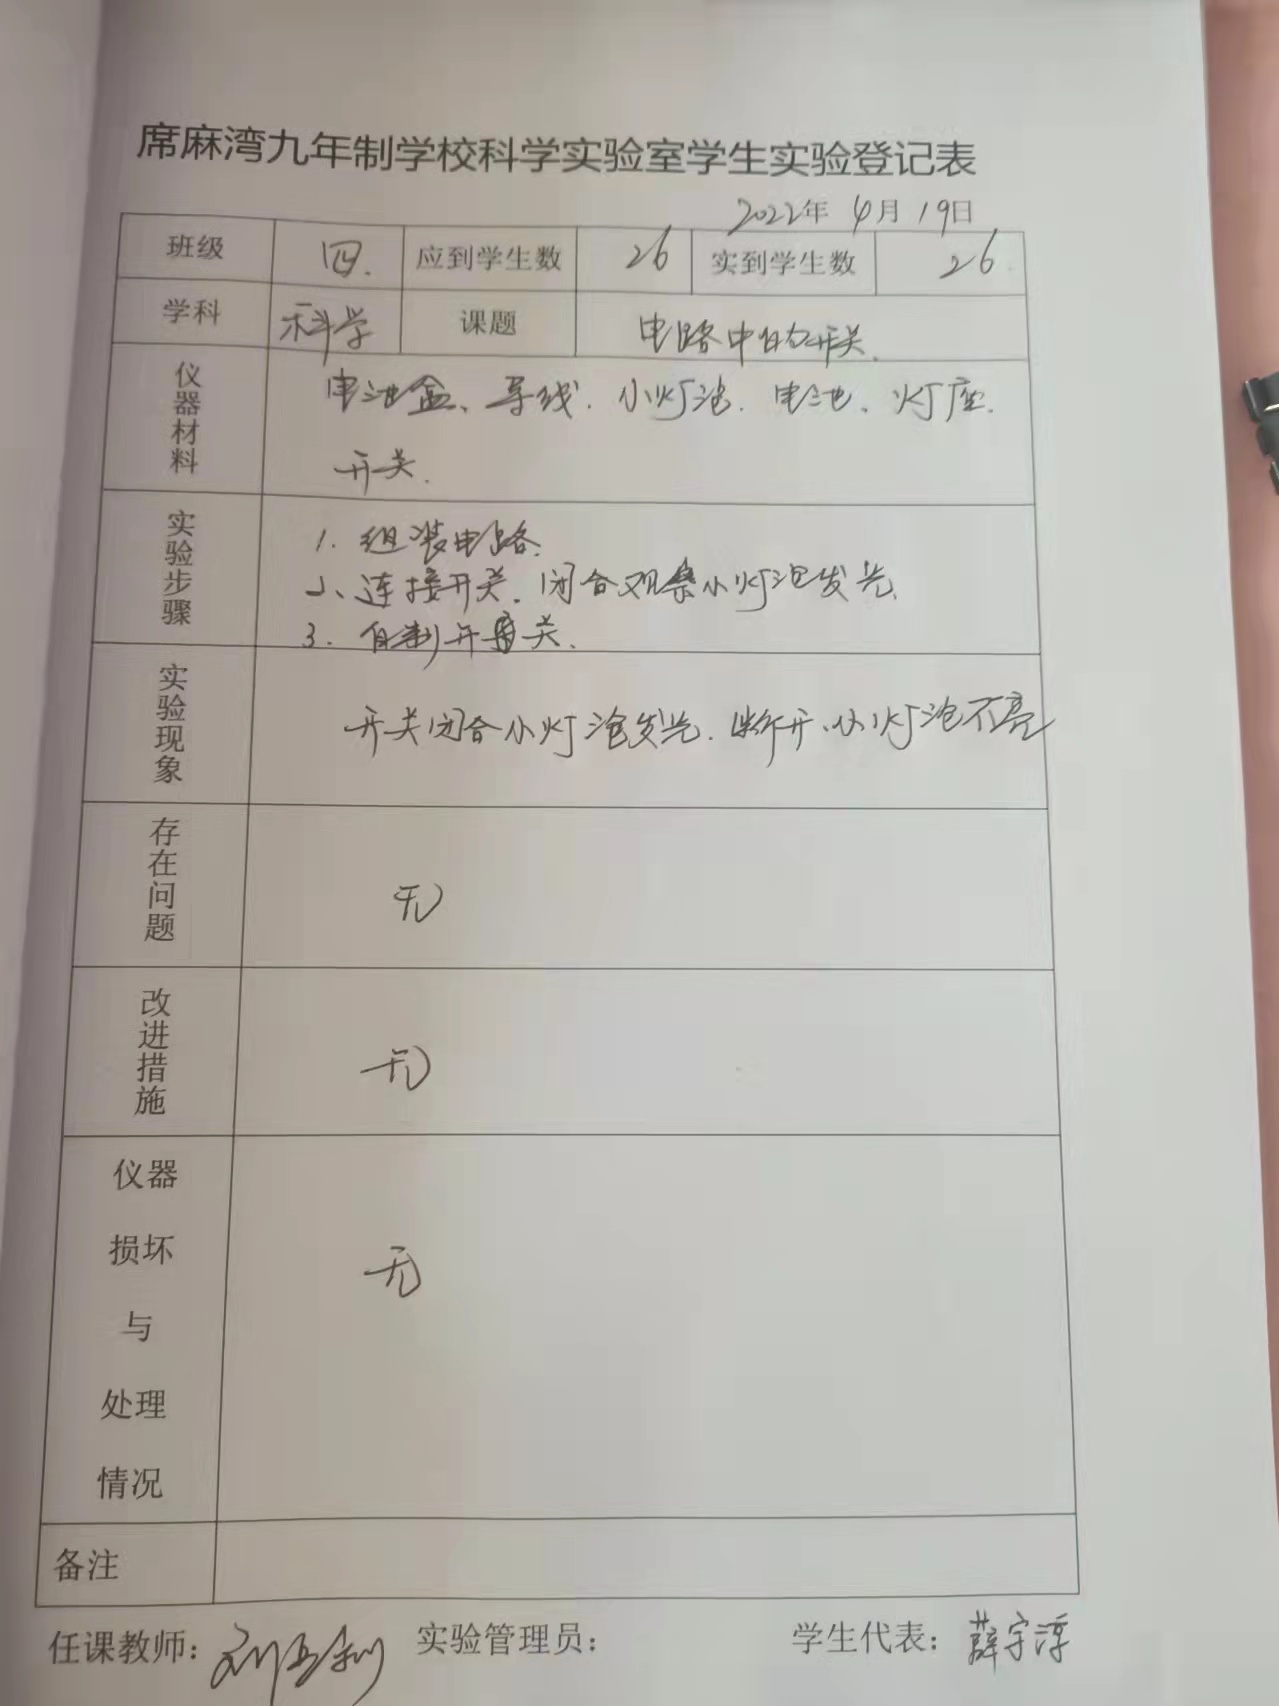 席麻湾九年制学校科学实验室学生实验登记表
2022年 4月 19日
班级 四. 应到学生数 26 实到学生数 26
学科 科学 课题 电路中的开关.
仪器材料 电池盒、导线. 小灯泡. 电池、灯座.
开关.
实验步骤 1. 组装电路.
2、连接开关. 闭合观察小灯泡发光.
3. 自制开关、
实验现象 开关闭合小灯泡发光. 断开、小灯泡不亮
存在问题 无
改进措施 无
仪器
损坏
与
处理
情况
无
备注
任课教师: 刘 利 实验管理员: 学生代表: 薛宇淳